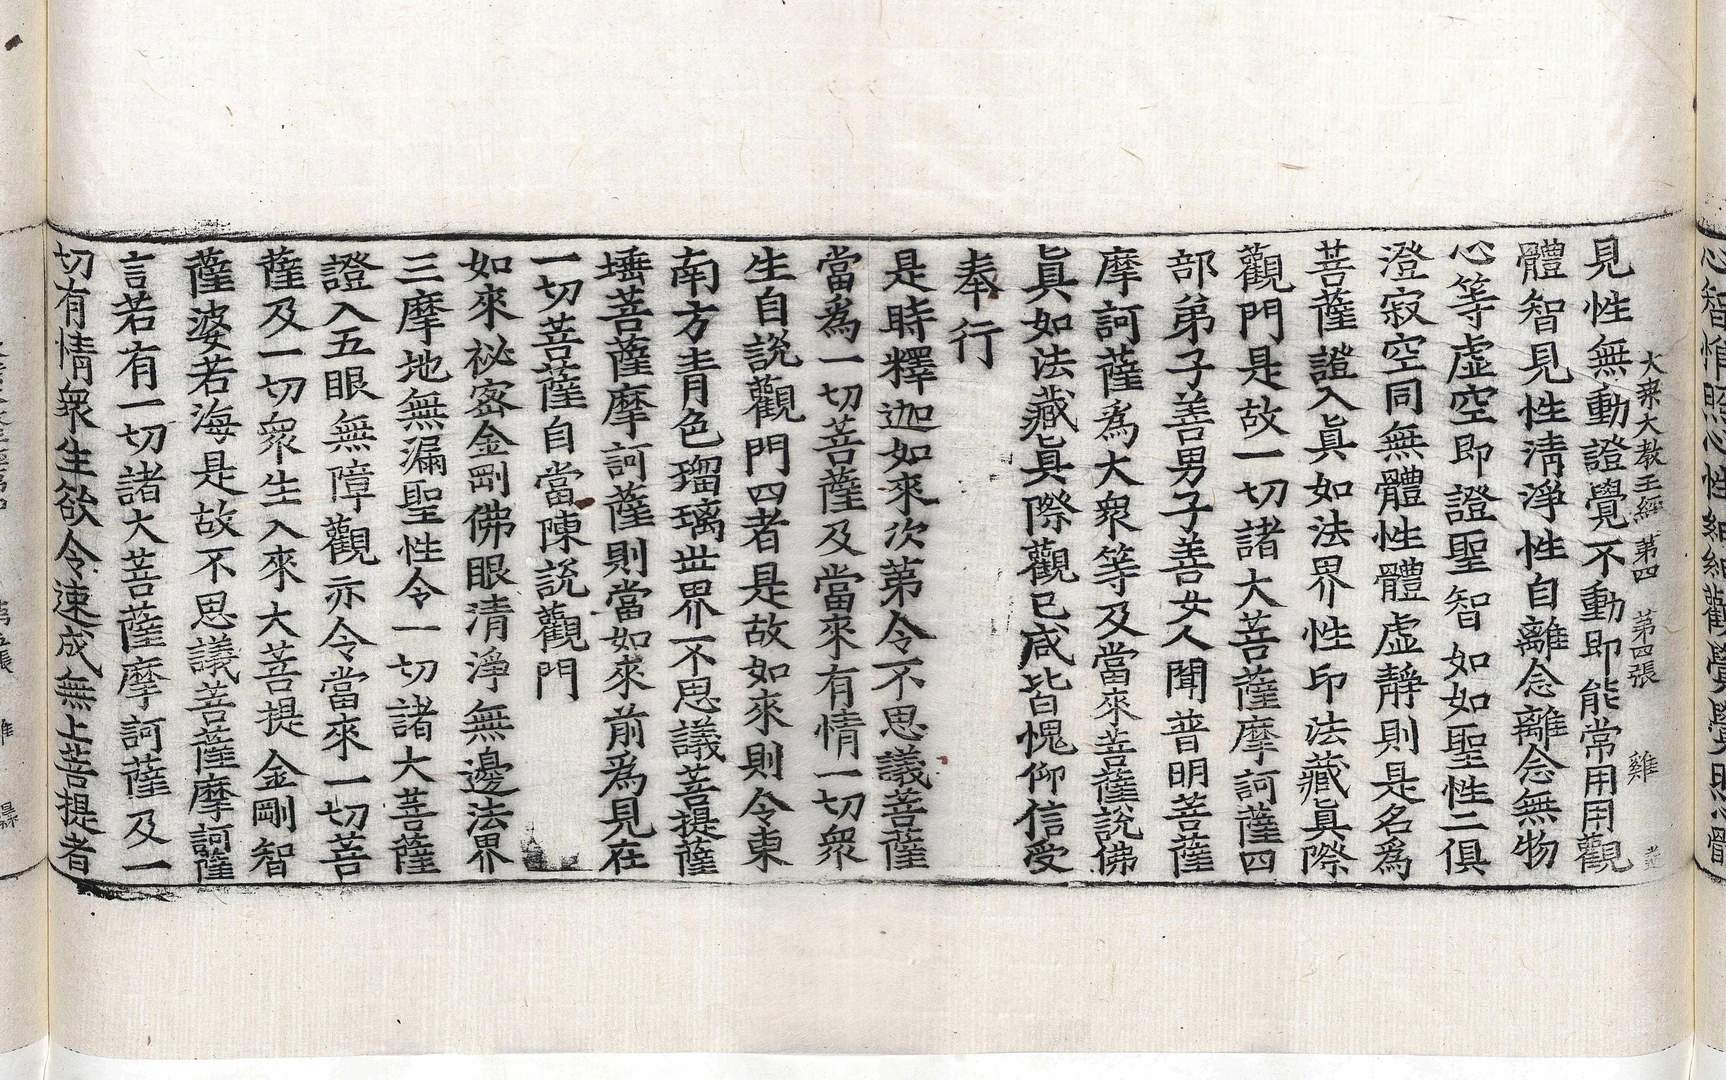 大乘大教王經 第四 第四張 雞
見性無動證覺不動即能常用用觀
體智見性淸淨性自離念離念無物
心等虛空即證聖智如如聖性二俱
澄寂空同無體性體虛靜則是名爲
菩薩證入眞如法界性印法藏眞際
觀門是故一切諸大菩薩摩訶薩四
部弟子善男子善女人聞普明菩薩
摩訶薩爲大衆等及當來菩薩說佛
眞如法藏眞際觀已咸皆愧仰信受
奉行
是時釋迦如來次第令不思議菩薩
當爲一切菩薩及當來有情一切衆
生自說觀門四者是故如來則令東
南方靑色瑠璃世界不思議菩提薩
埵菩薩摩訶薩則當如來前爲見在
一切菩薩自當陳說觀門
如來祕密金剛佛眼清淨無邊法界
三摩地無漏聖性令一切諸大菩薩
證入五眼無障觀亦令當來一切菩
薩及一切衆生入來大菩提金剛智
薩婆若海是故不思議菩薩摩訶薩
言若有一切諸大菩薩摩訶薩及一
切有情衆生欲令速成無上菩提者